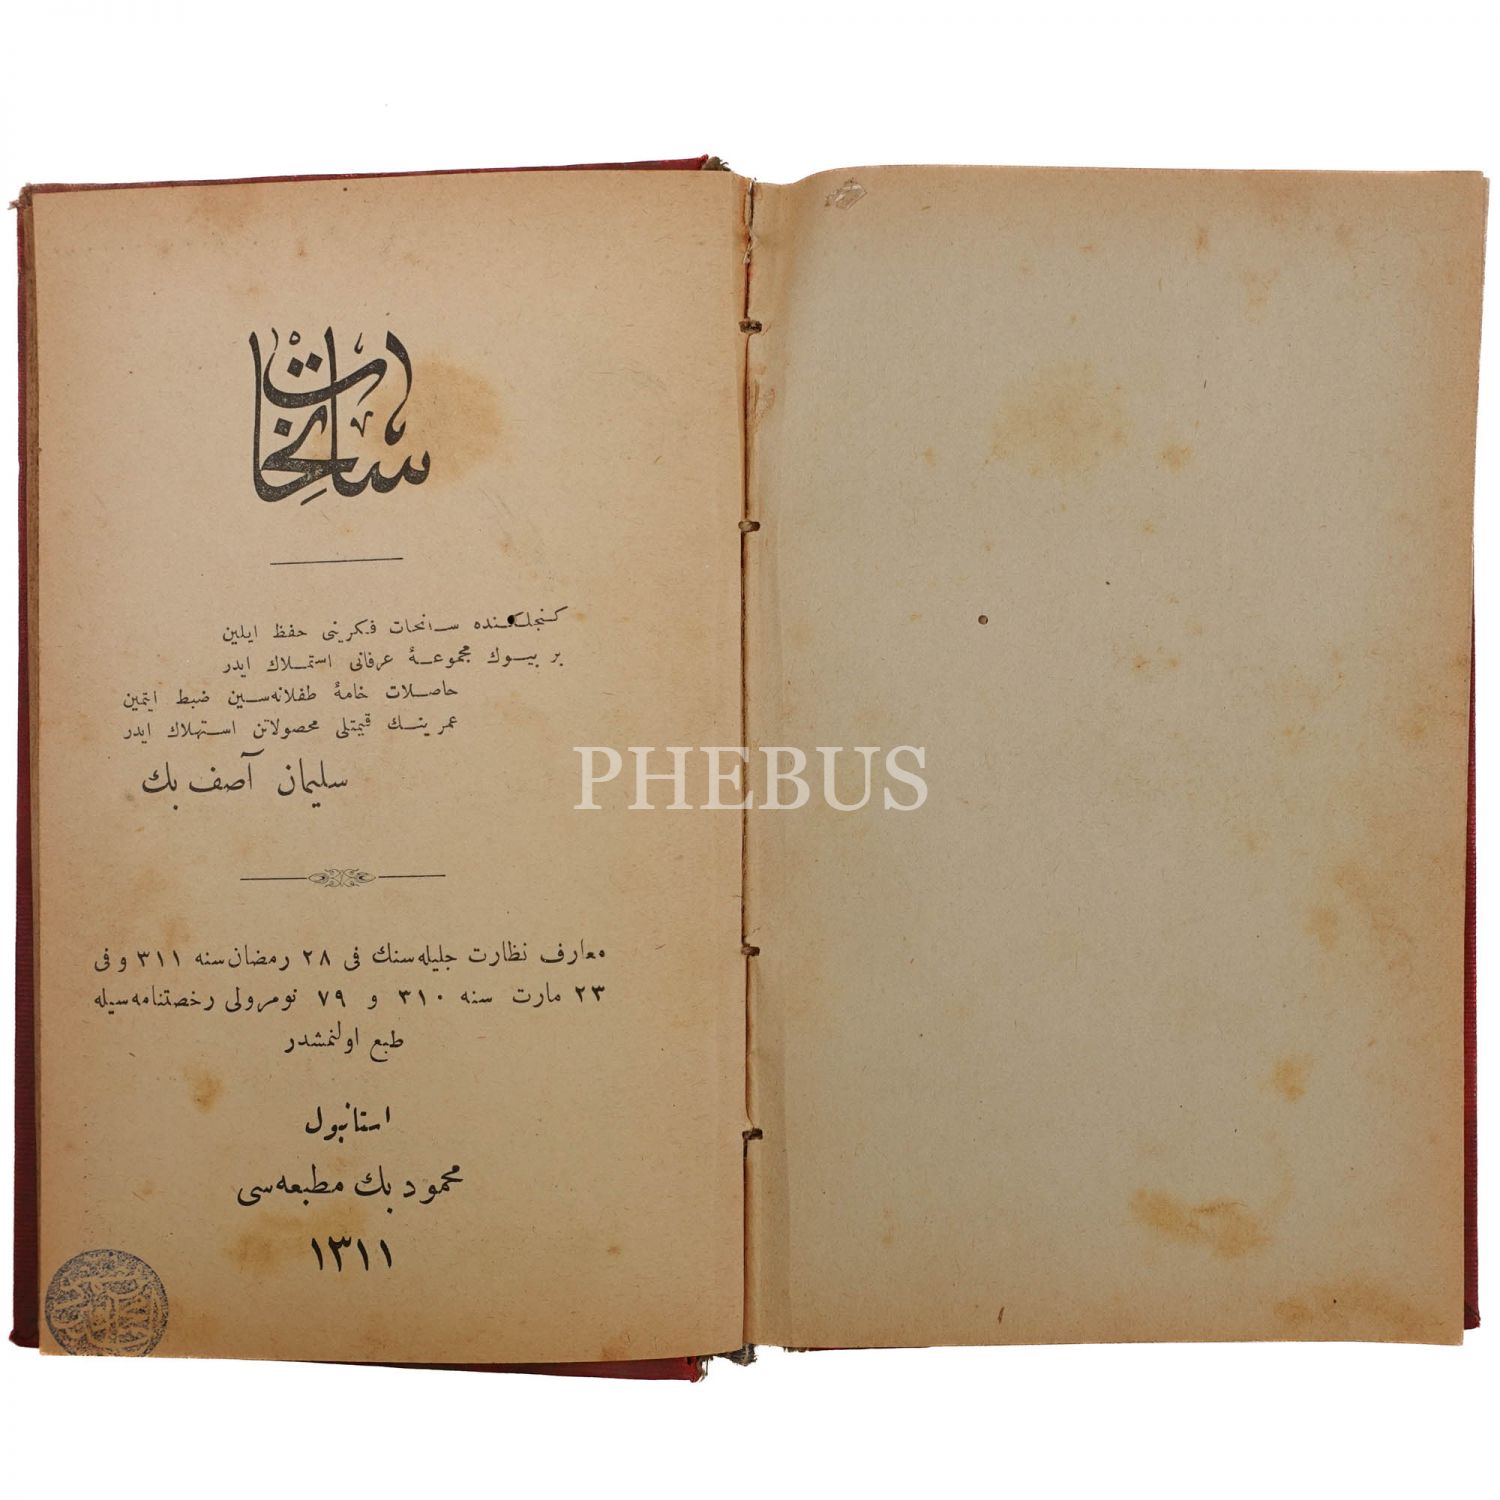 سانحات
كنجلكنده سانحات فكرينى حفظ ايلين
بر بيوك مجموعۀ عرفانى استملاك ايدر
حاصلات خامۀ طفلانه‌سين ضبط ايتمين
عمرينك قيمتلى محصولاتن استهلاك ايدر
سليمان آصف بك
معارف نظارت جليله‌سنك فى ٢٨ رمضان سنه ٣١١ و فى
٢٣ مارت سنه ٣١٠ و ٧٩ نومرولى رخصتنامه‌سيله
طبع اولنمشدر
استانبول
محمود بك مطبعه‌سى
١٣١١
PHEBUS